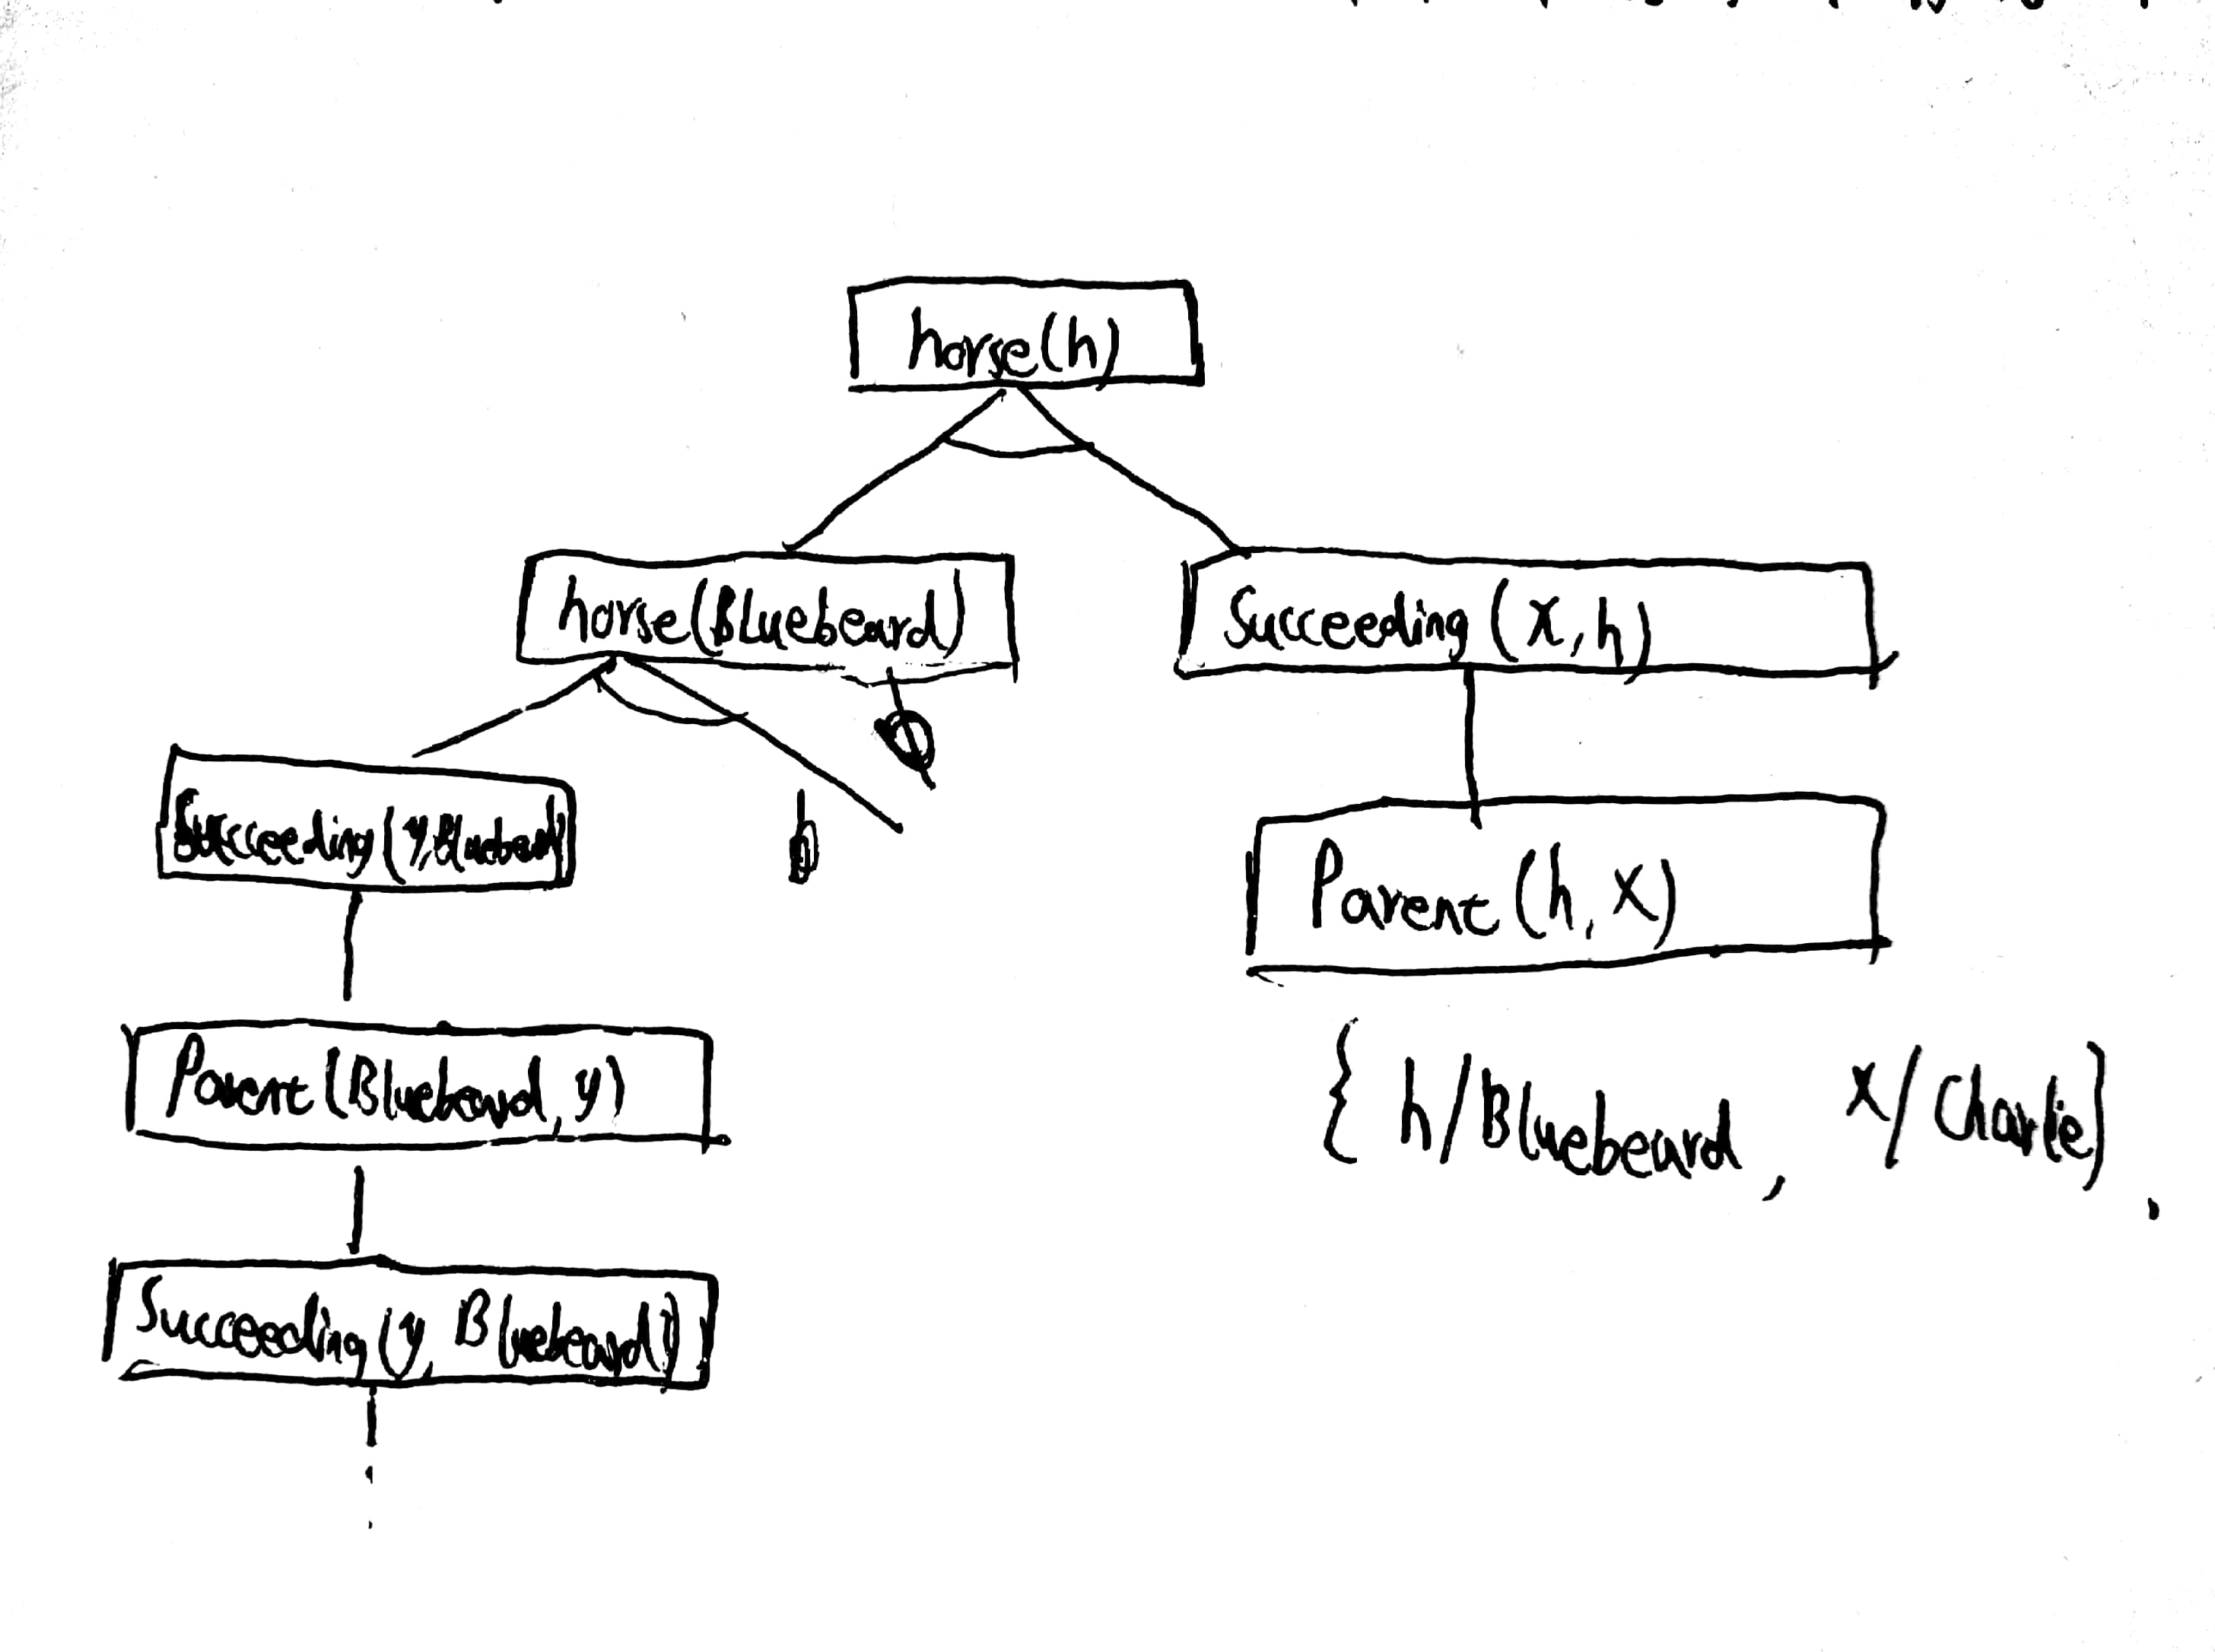 horse(h)
horse(Bluebeard)
Succeeding(x,h)
Succeeding(y,Bluebeard)
Parent(h,x)
Parent(Bluebeard,y)
{h/Bluebeard, x/Charlie}.
Succeeding(y,Bluebeard)